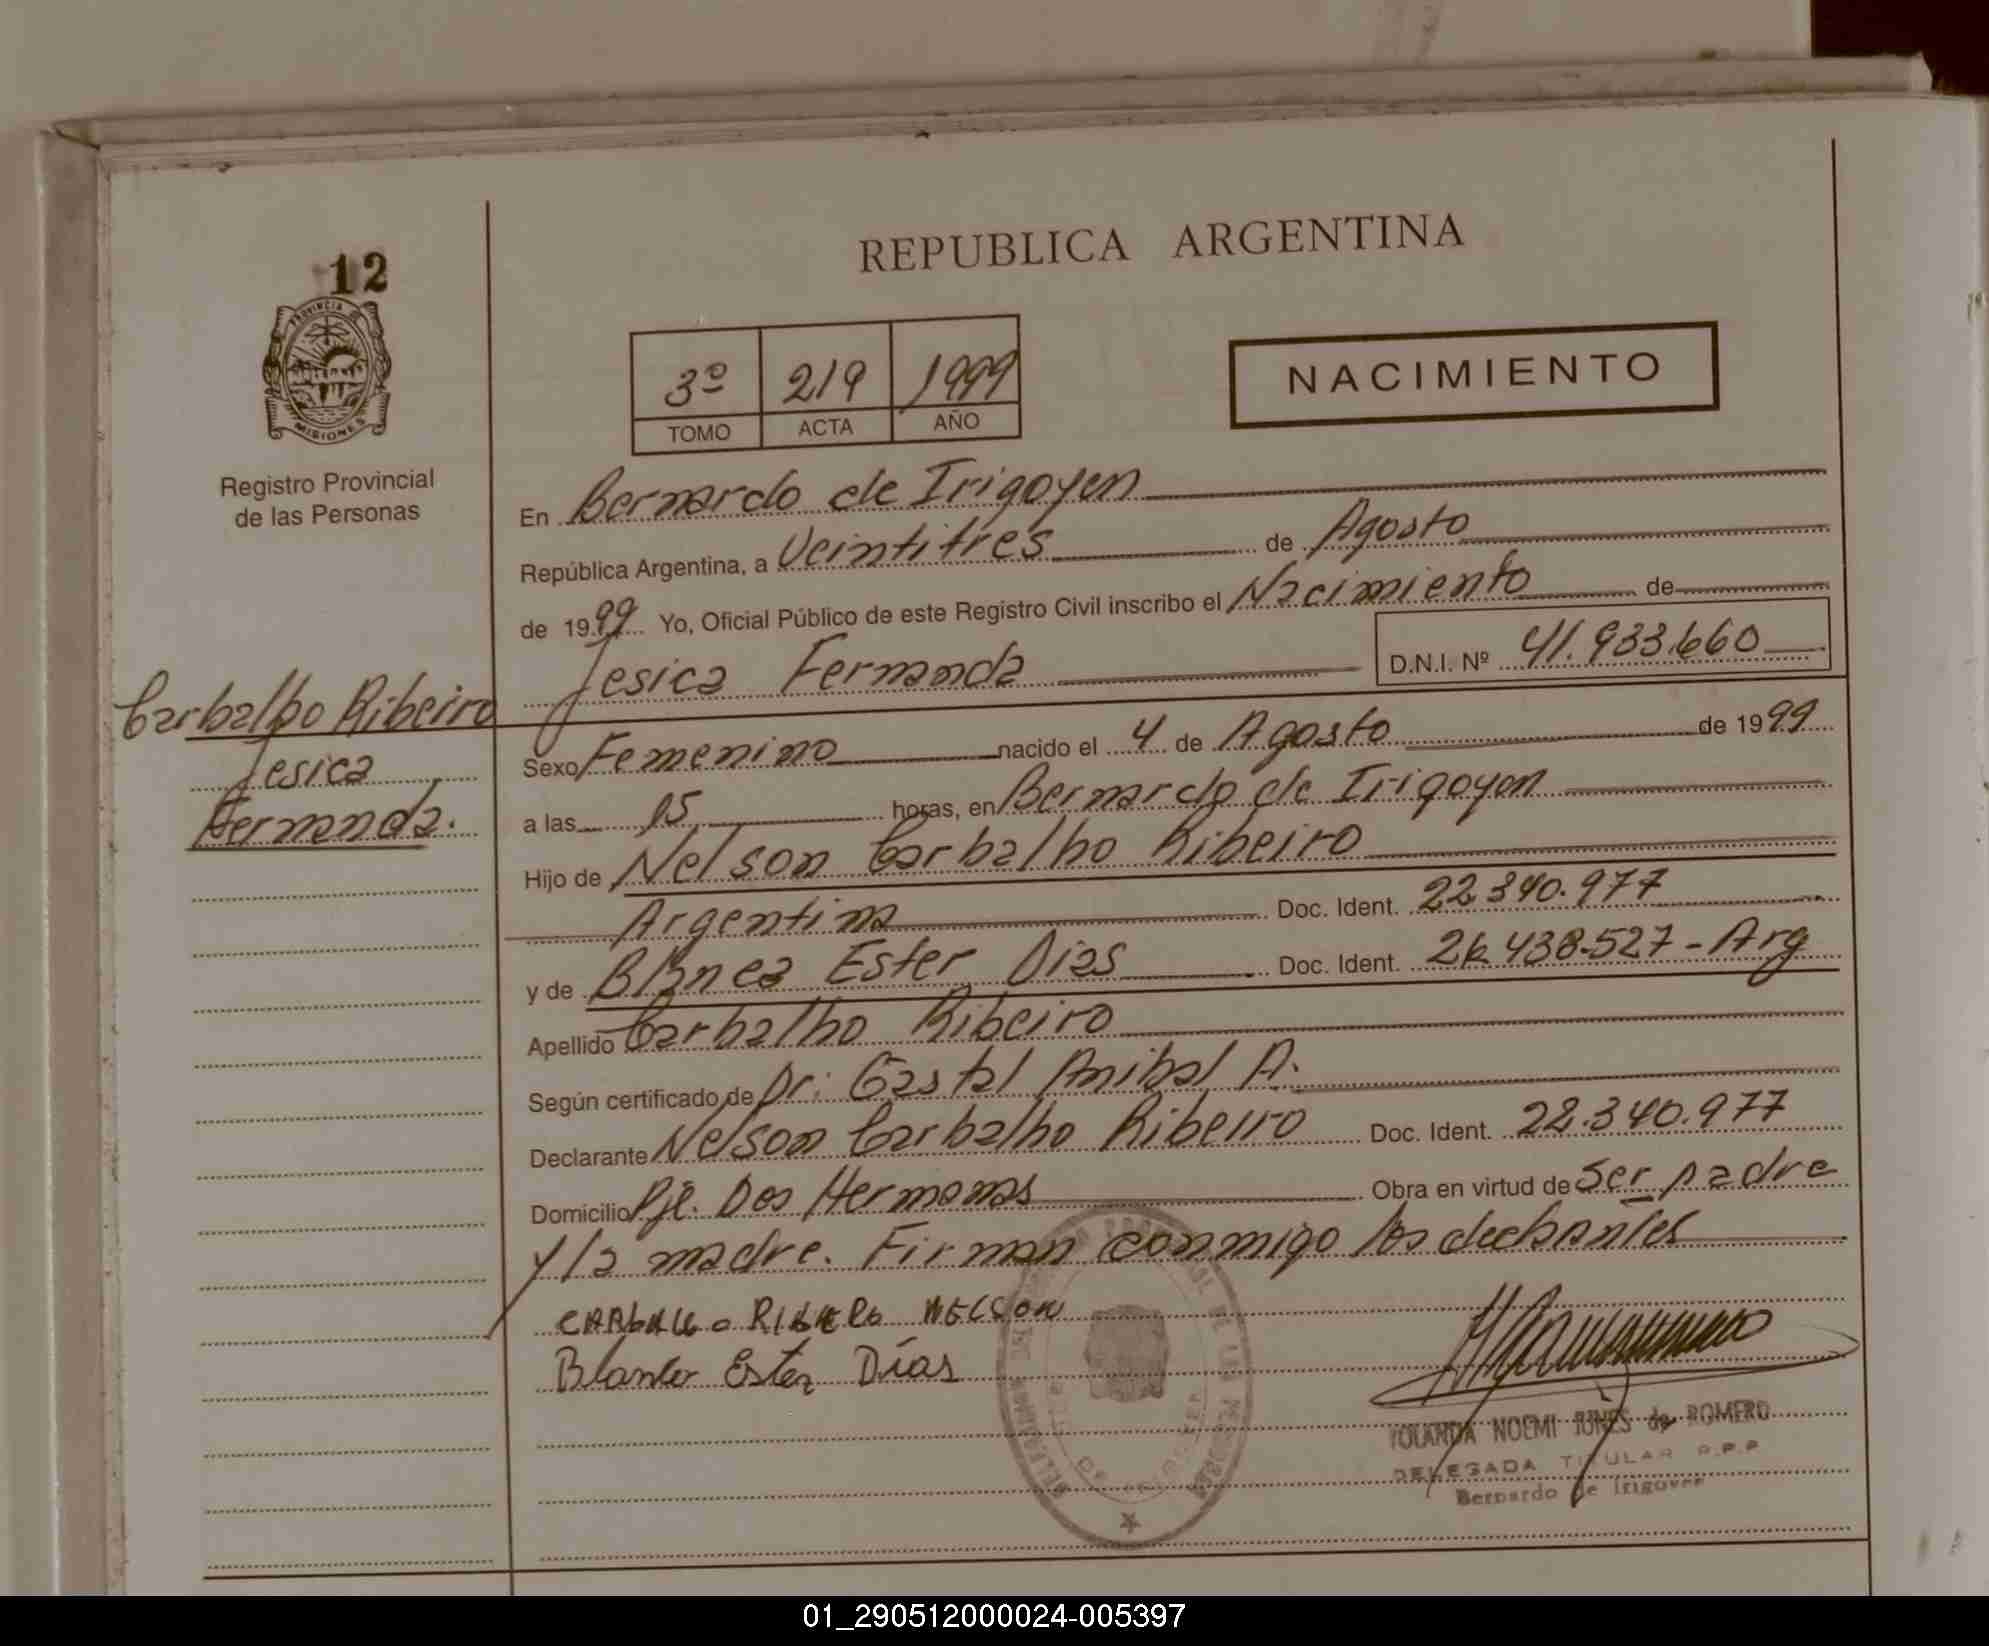 12
PROVINCIA DE
MISIONES
Registro Provincial
de las Personas
Carbalho Ribeiro
Jesica
Fernanda.
REPUBLICA ARGENTINA
3º 219 1999
TOMO ACTA AÑO
NACIMIENTO
En Bernardo de Irigoyen
República Argentina, a Veintitres de Agosto
de 1999 Yo, Oficial Público de este Registro Civil inscribo el Nacimiento de
Jesica Fernanda D.N.I. Nº 41.933.660
Sexo Femenino nacido el 4 de Agosto de 1999
a las 15 horas, en Bernardo de Irigoyen
Hijo de Nelson Carbalho Ribeiro
Argentina Doc. Ident. 22.340.977
y de Blanca Ester Dias Doc. Ident. 438.527 - Arg
Apellido Carbalho Ribeiro
Según certificado de Dr: Gastal Anibal A.
Declarante Nelson Carbalho Ribeiro Doc. Ident. 22.340.977
Domicilio Pje. Dos Hermanas Obra en virtud de Ser padre
y la madre. Firman conmigo los declarantes
NELSON
Ester Días
YOLANDA NOEMI JUNES de ROMERO
DELEGADA TITULAR R.P.P
Bernardo de Irigoyen
01_290512000024-005397